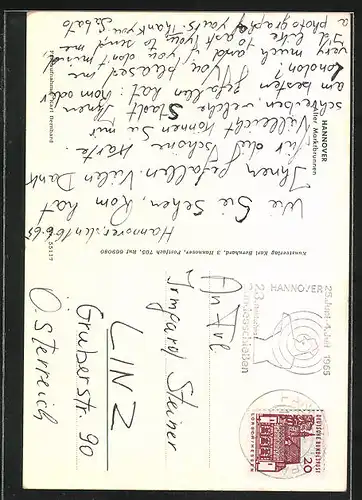 Hannover, den 16.6.65
Wie Sie sehen, Rom hat
Ihnen gefallen. Vielen Dank
für die schöne Karte.
Vielleicht können Sie mir
schreiben, welche Stadt Ihnen
am besten gefallen hat: Rom oder
London?
If you pleased me
very much and, if you don't mind,
I'd like to ask you to send me
a photograph of yours. Thank you.
HANNOVER
alter Marktbrunnen
Karl Bernhard
Kunstverlag Karl Bernhard, 3 Hannover, Postfach 705, Ruf 669080
55137
HANNOVER
25. Juni - 4. Juli 1965
DEUTSCHE BUNDESPOST
20
An Frl
Irmgard Steiner
LINZ
Gruberstr. 90
Österreich